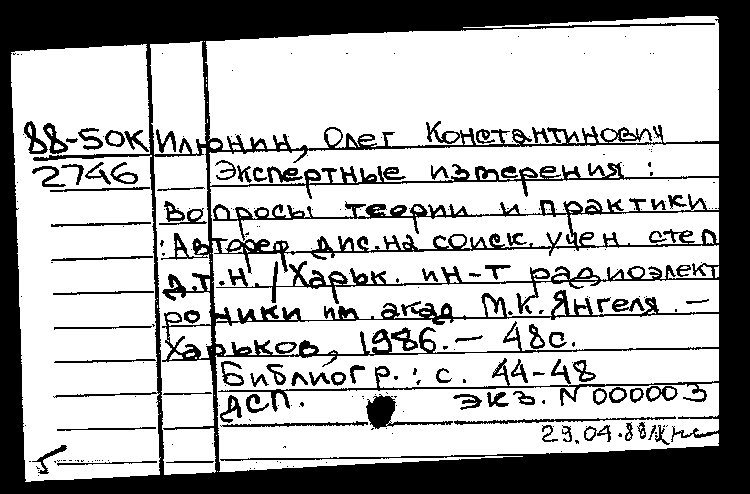 88-50К Илюнин, Олег Константинович
2746 Экспертные измерения :
Вопросы теории и практики
: Автореф. дис. на соиск. учен. степ
д.т.н. / Харьк. ин-т радиоэлект
роники им. акад. М.К. Янгеля. —
Харьков, 1986. — 48с.
Библиогр.: с. 44-48
ДСП. экз. N 000003
29.04.88
5